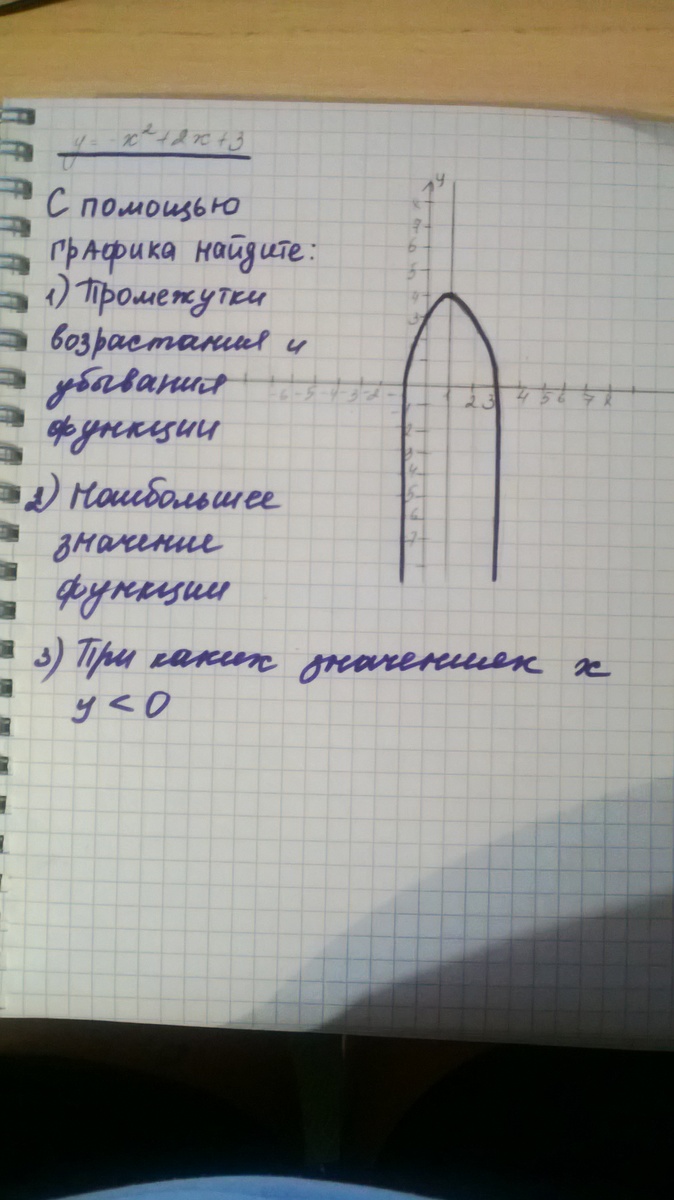 y = -x² + 2x + 3
С помощью
графика найдите:
1) Промежутки
возрастания и
убывания
функции
2) Наибольшее
значение
функции
3) При каких значениях x
y < 0
y
8
7
6
5
4
3
-6 -5 -4 -3 -2 1 2 3 4 5 6 7 8
-1
2
3
4
5
6
7